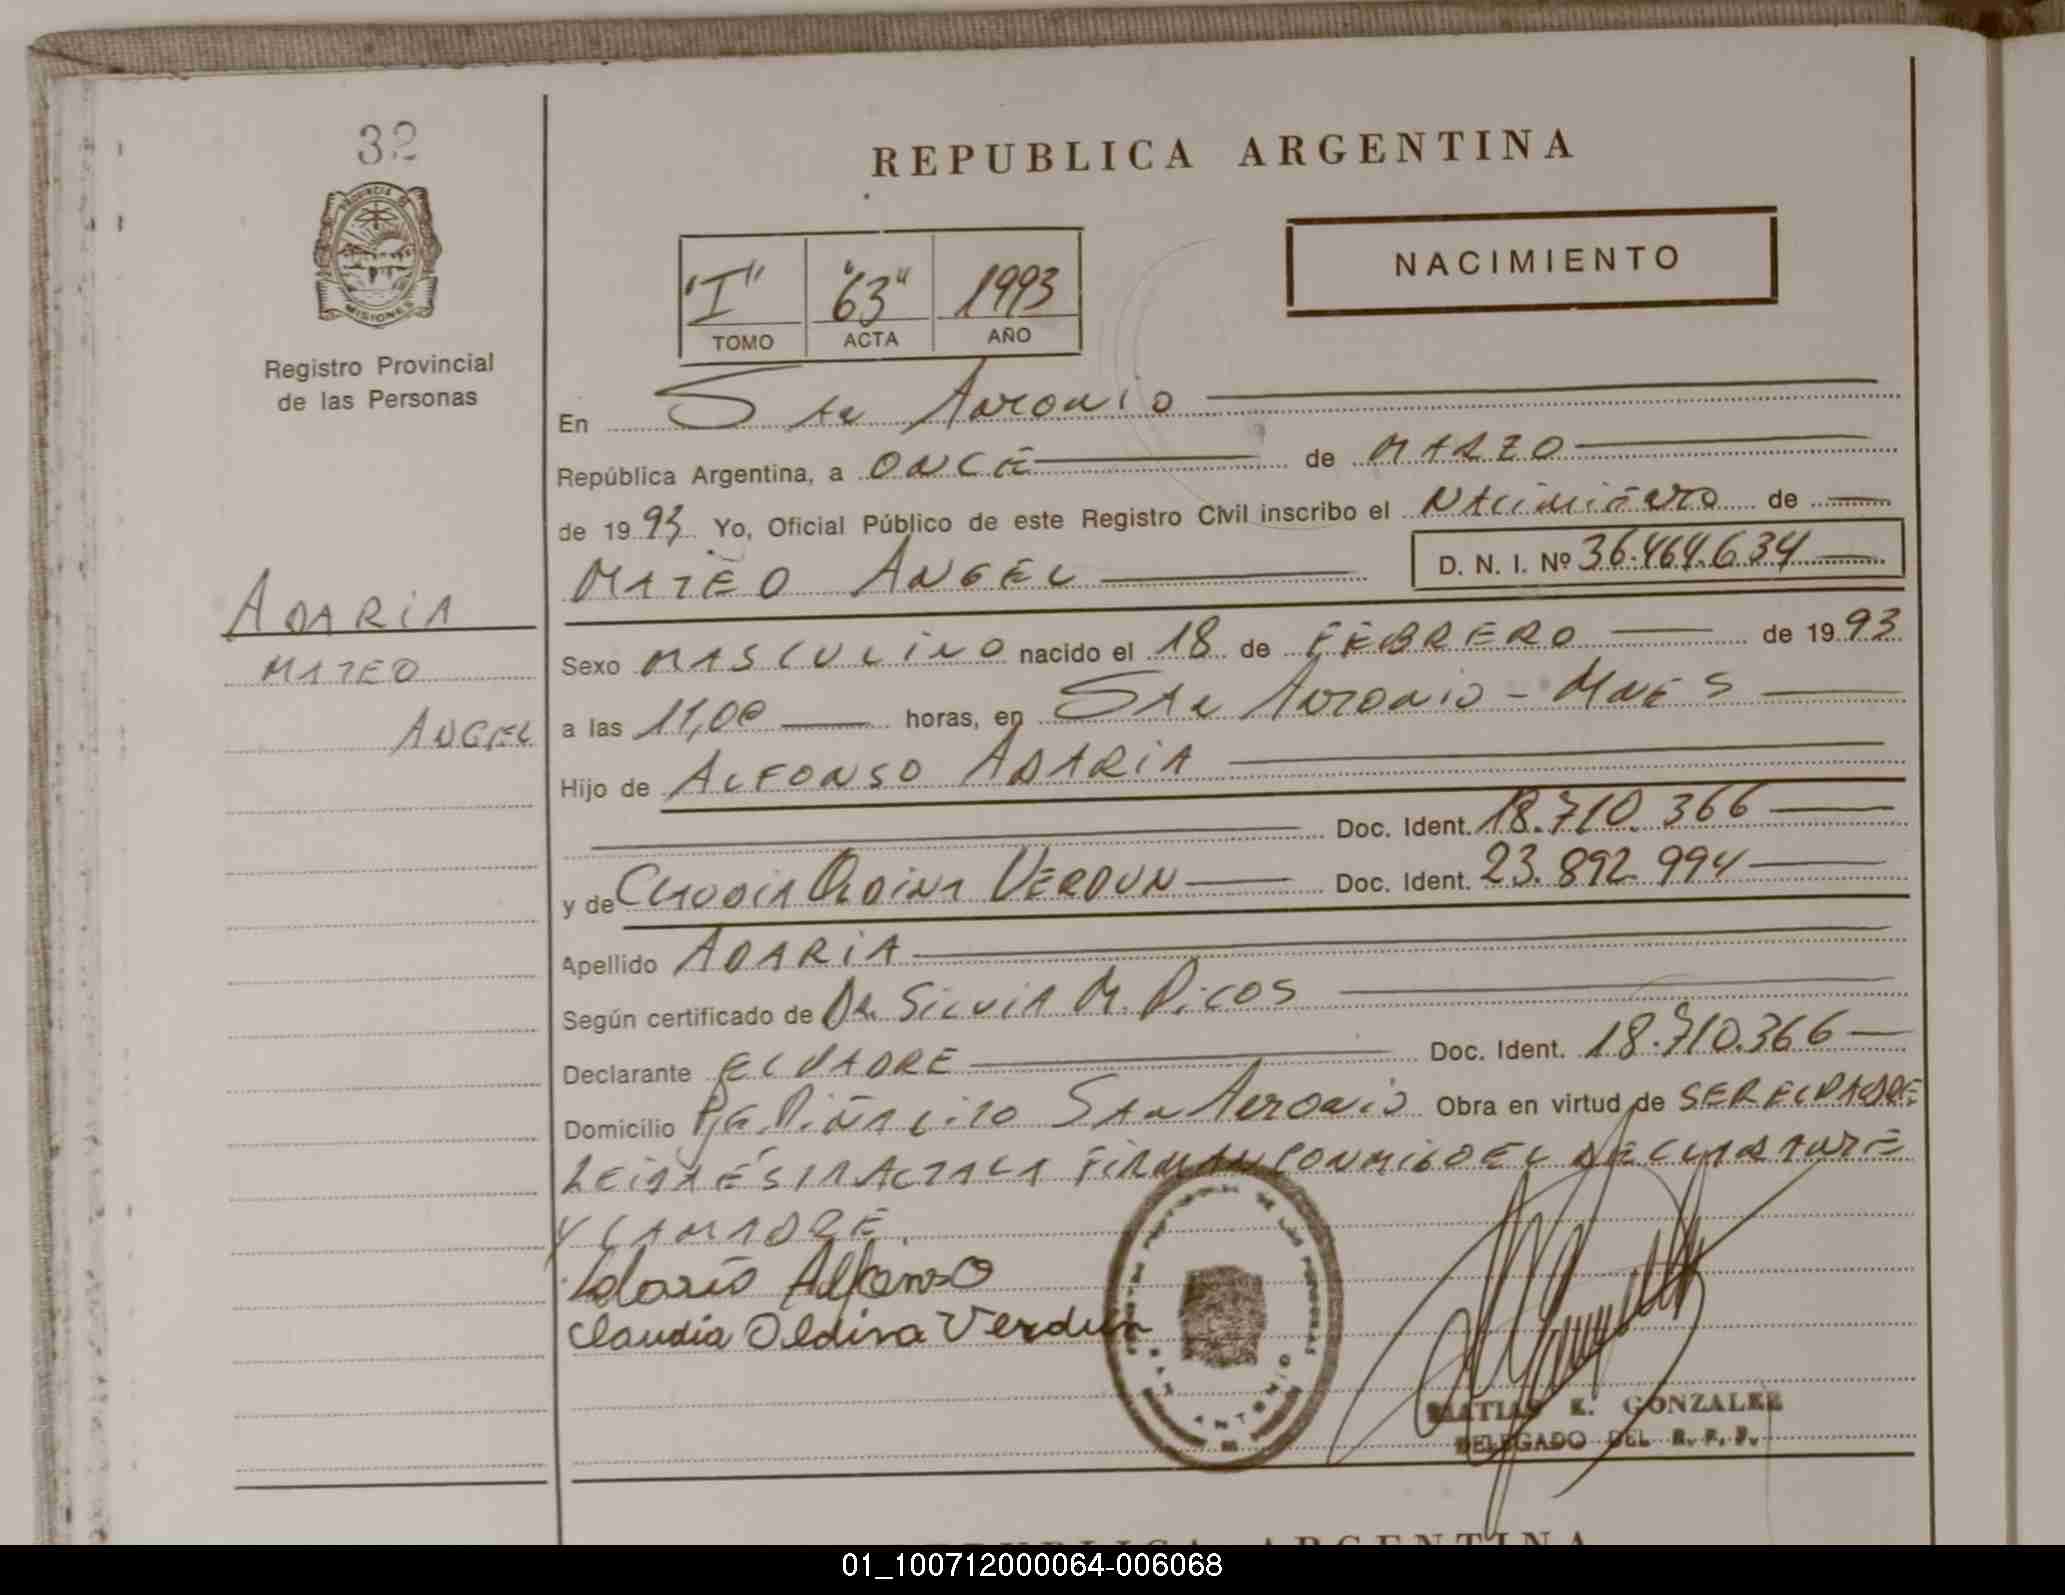 32
PROVINCIA DE
MISIONES
Registro Provincial
de las Personas
REPUBLICA ARGENTINA
NACIMIENTO
"I" "63" 1993
TOMO ACTA AÑO
En San Antonio
República Argentina, a ONCE de MARZO
de 1993 Yo, Oficial Público de este Registro Civil inscribo el NACIMIENTO de
MATEO ANGEL D. N. I. Nº 36.464.634
ADARIA
MATEO
ANGEL
Sexo MASCULINO nacido el 18 de FEBRERO de 1993
a las 11,00 horas, en San Antonio - MNES
Hijo de ALFONSO ADARIA
Doc. Ident. 18.710.366
y de CLAUDIA OLDINA VERDUN Doc. Ident. 23.892.994
Apellido ADARIA
Según certificado de DR. SILVIA M. RICOS
Declarante EL PADRE Doc. Ident. 18.710.366
Domicilio PJE PIÑALITO San Antonio Obra en virtud de SER EL PADRE
LEIDA ESTA ACTA LA FIRMAN CONMIGO EL DECLARANTE
Y LA MADRE.
Adaria Alfonso
Claudia Oldina Verdun
SAN ANTONIO
MATIAS E. GONZALEZ
DELEGADO DEL R. P. P.
REPUBLICA ARGENTINA
01_100712000064-006068